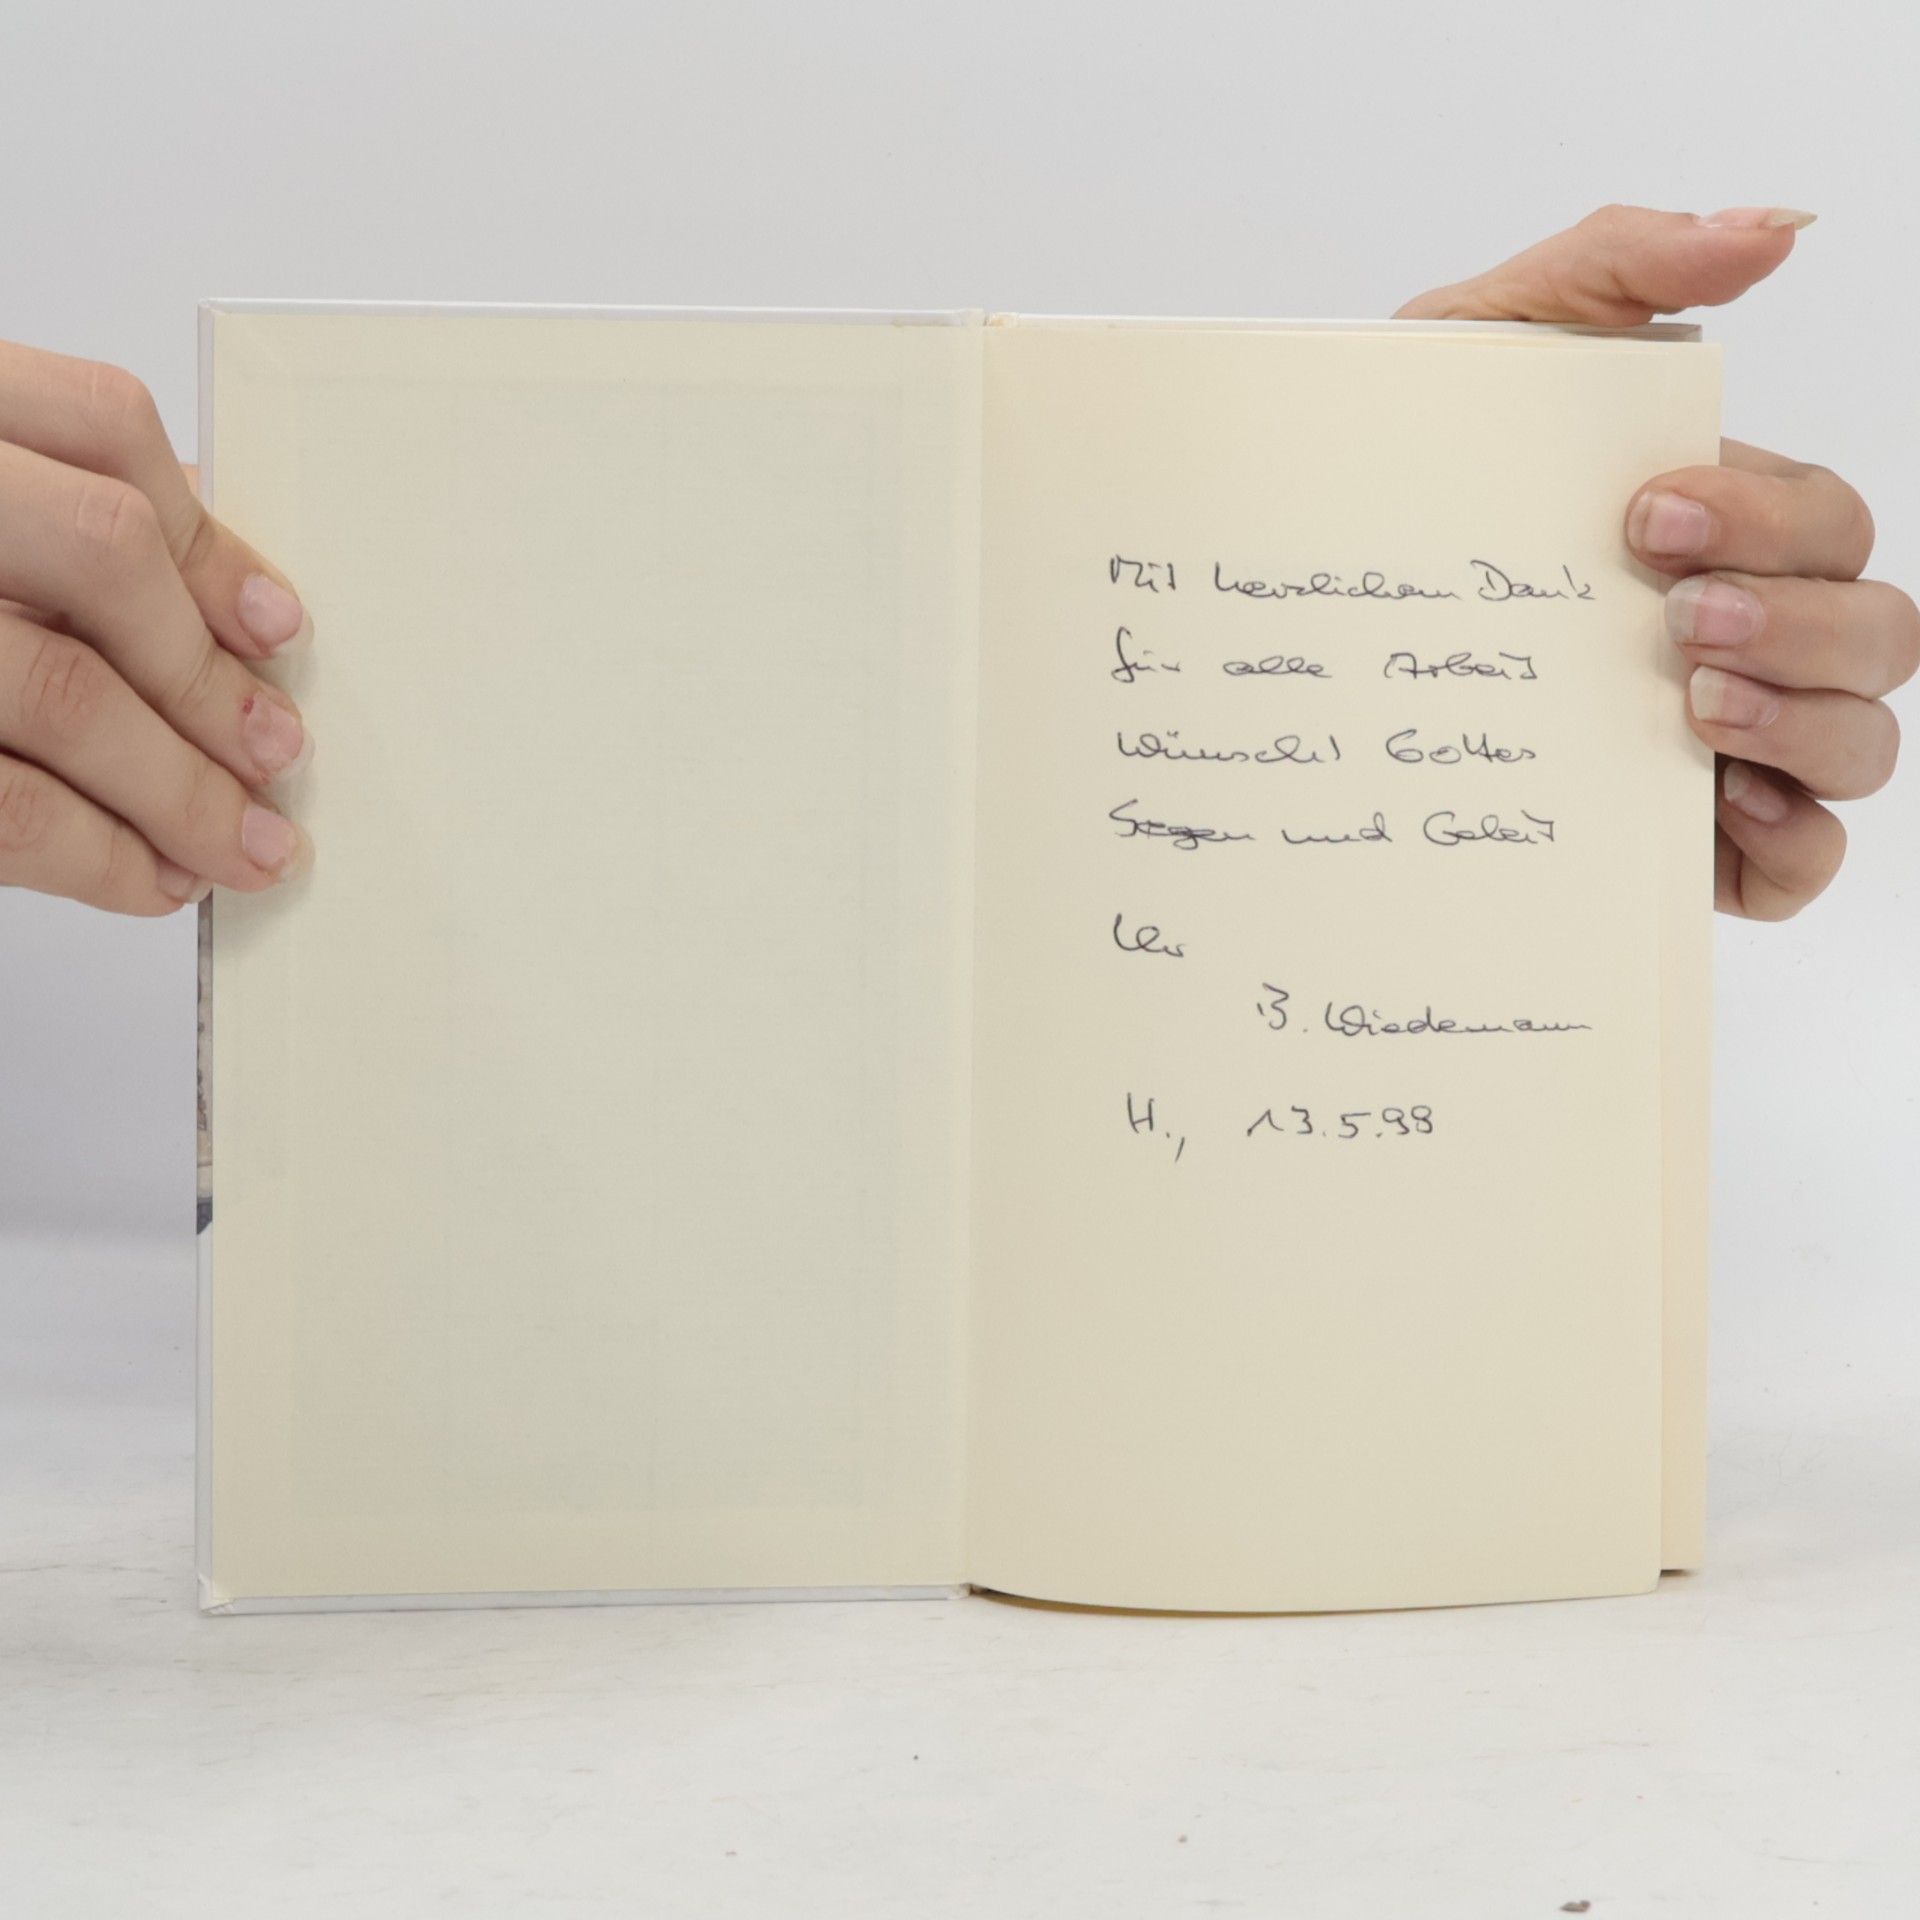 Mit herzlichem Dank
für alle Arbeit
wünscht Gottes
Segen und Geleit
Ihr
B. Wiedemann
H., 13.5.98